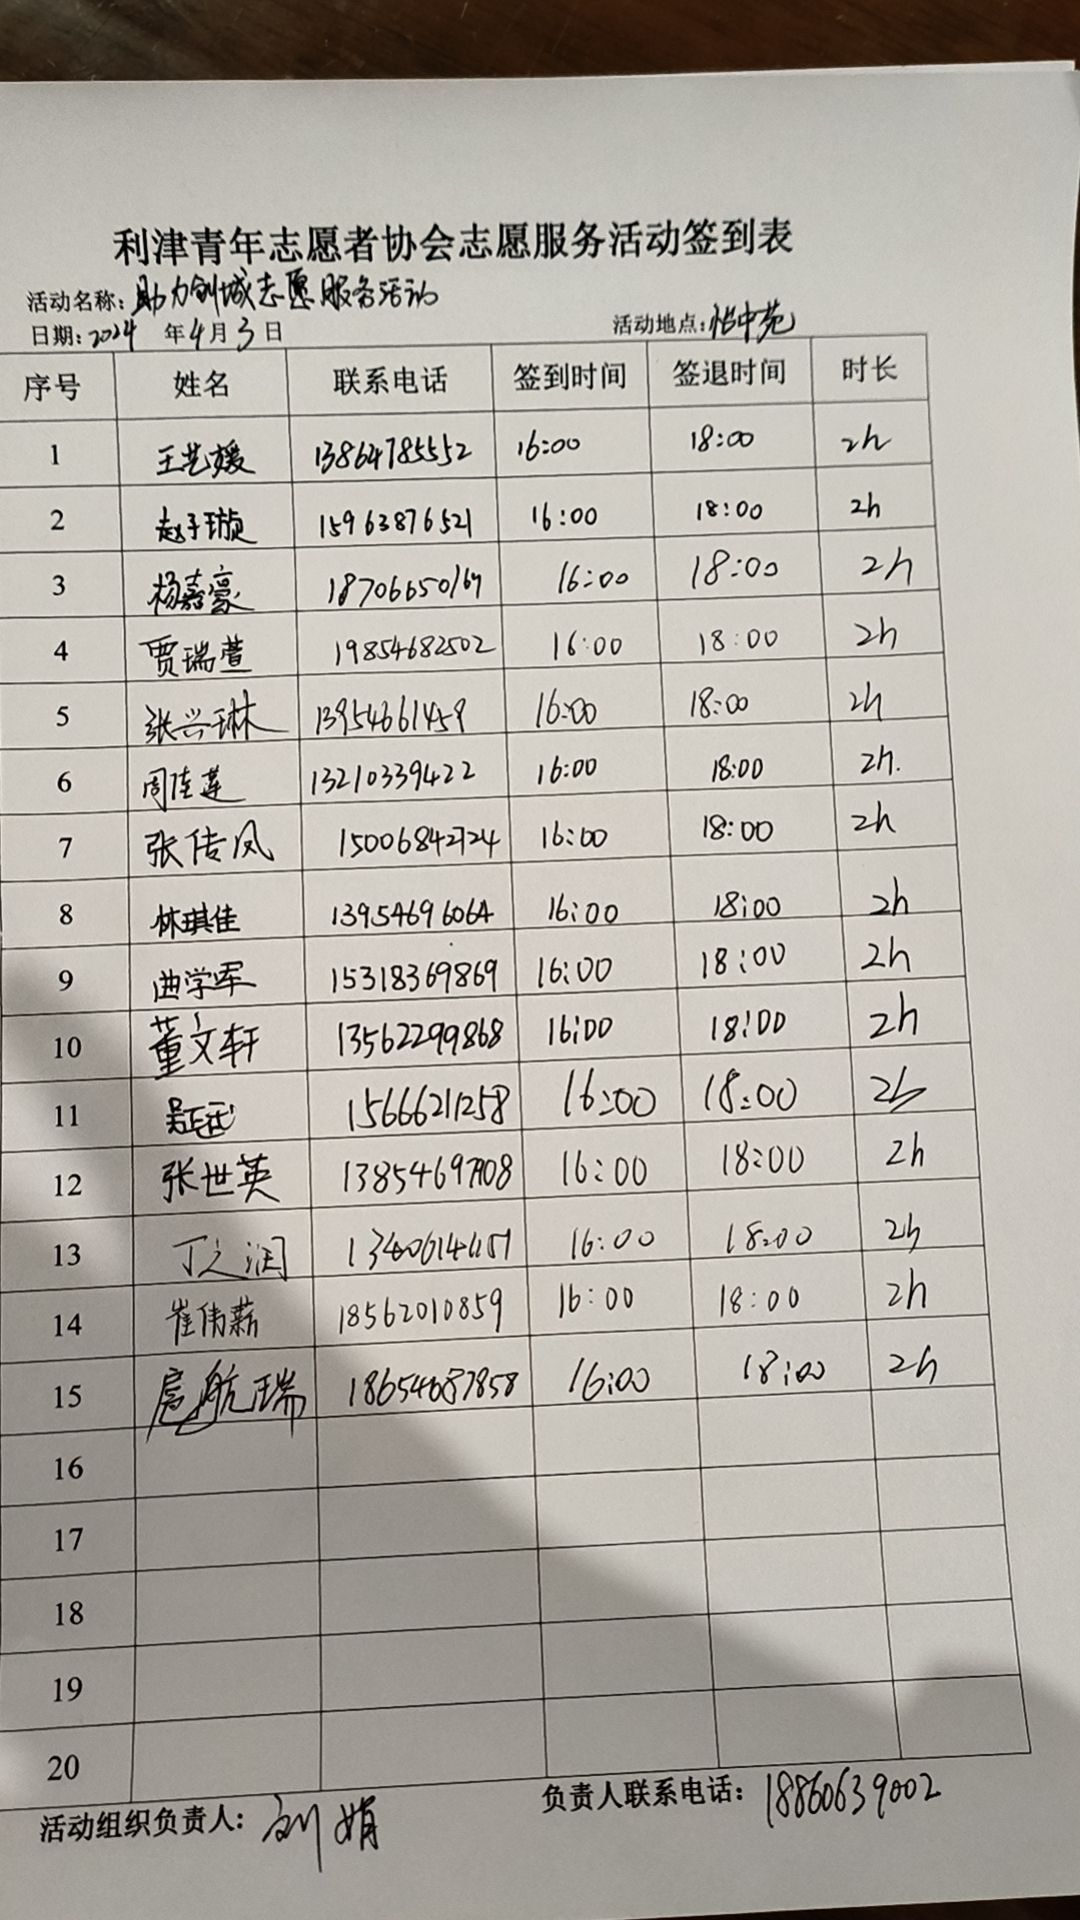 利津青年志愿者协会志愿服务活动签到表
活动名称:助力创城志愿服务活动
日期:2024 年4月3日 活动地点:怡中苑
序号 姓名 联系电话 签到时间 签退时间 时长
1 王艺媛 13864785552 16:00 18:00 2h
2 赵子璇 15963876521 16:00 18:00 2h
3 杨嘉豪 16:00 18:00 2h
4 贾瑞萱 19854682502 16:00 18:00 2h
5 张兴琳 13954661459 16:00 18:00 2h
6 周佳莲 13210339422 16:00 18:00 2h.
7 张传凤 15006842724 16:00 18:00 2h
8 林琪佳 13954696064 16:00 18:00 2h
9 曲学军 15318369869 16:00 18:00 2h
10 董文轩 13562299868 16:00 18:00 2h
11 15666211258 16:00 18:00 2h
12 张世英 16:00 18:00 2h
13 丁之润 16:00 18:00 2h
14 崔伟薪 18562010859 16:00 18:00 2h
15 扈航瑞 18654687858 16:00 18:00 2h
16
17
18
19
20
活动组织负责人: 刘娟 负责人联系电话: 18860639002